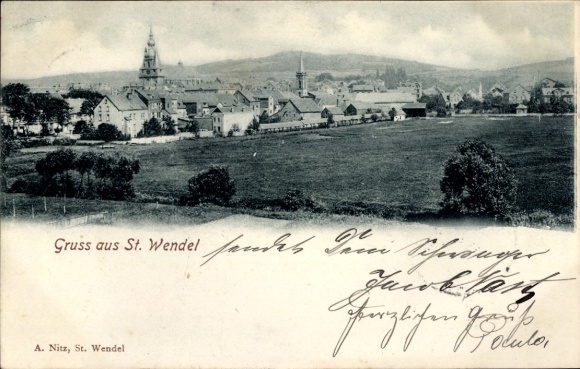 Gruss aus St. Wendel sendet Dein Schwager
Jacob
Herzlichen Gruß
Paula.
A. Nitz, St. Wendel